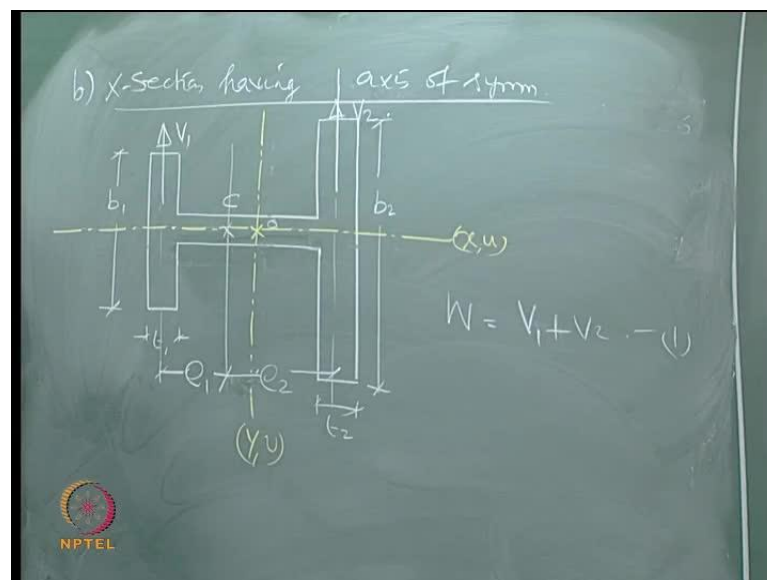 b) X-Section having 1 axis of symm.
V1
V2
b1
C
O
b2
(X,U)
W = V1 + V2 - (1)
t1
e1
e2
t2
(Y,V)
NPTEL